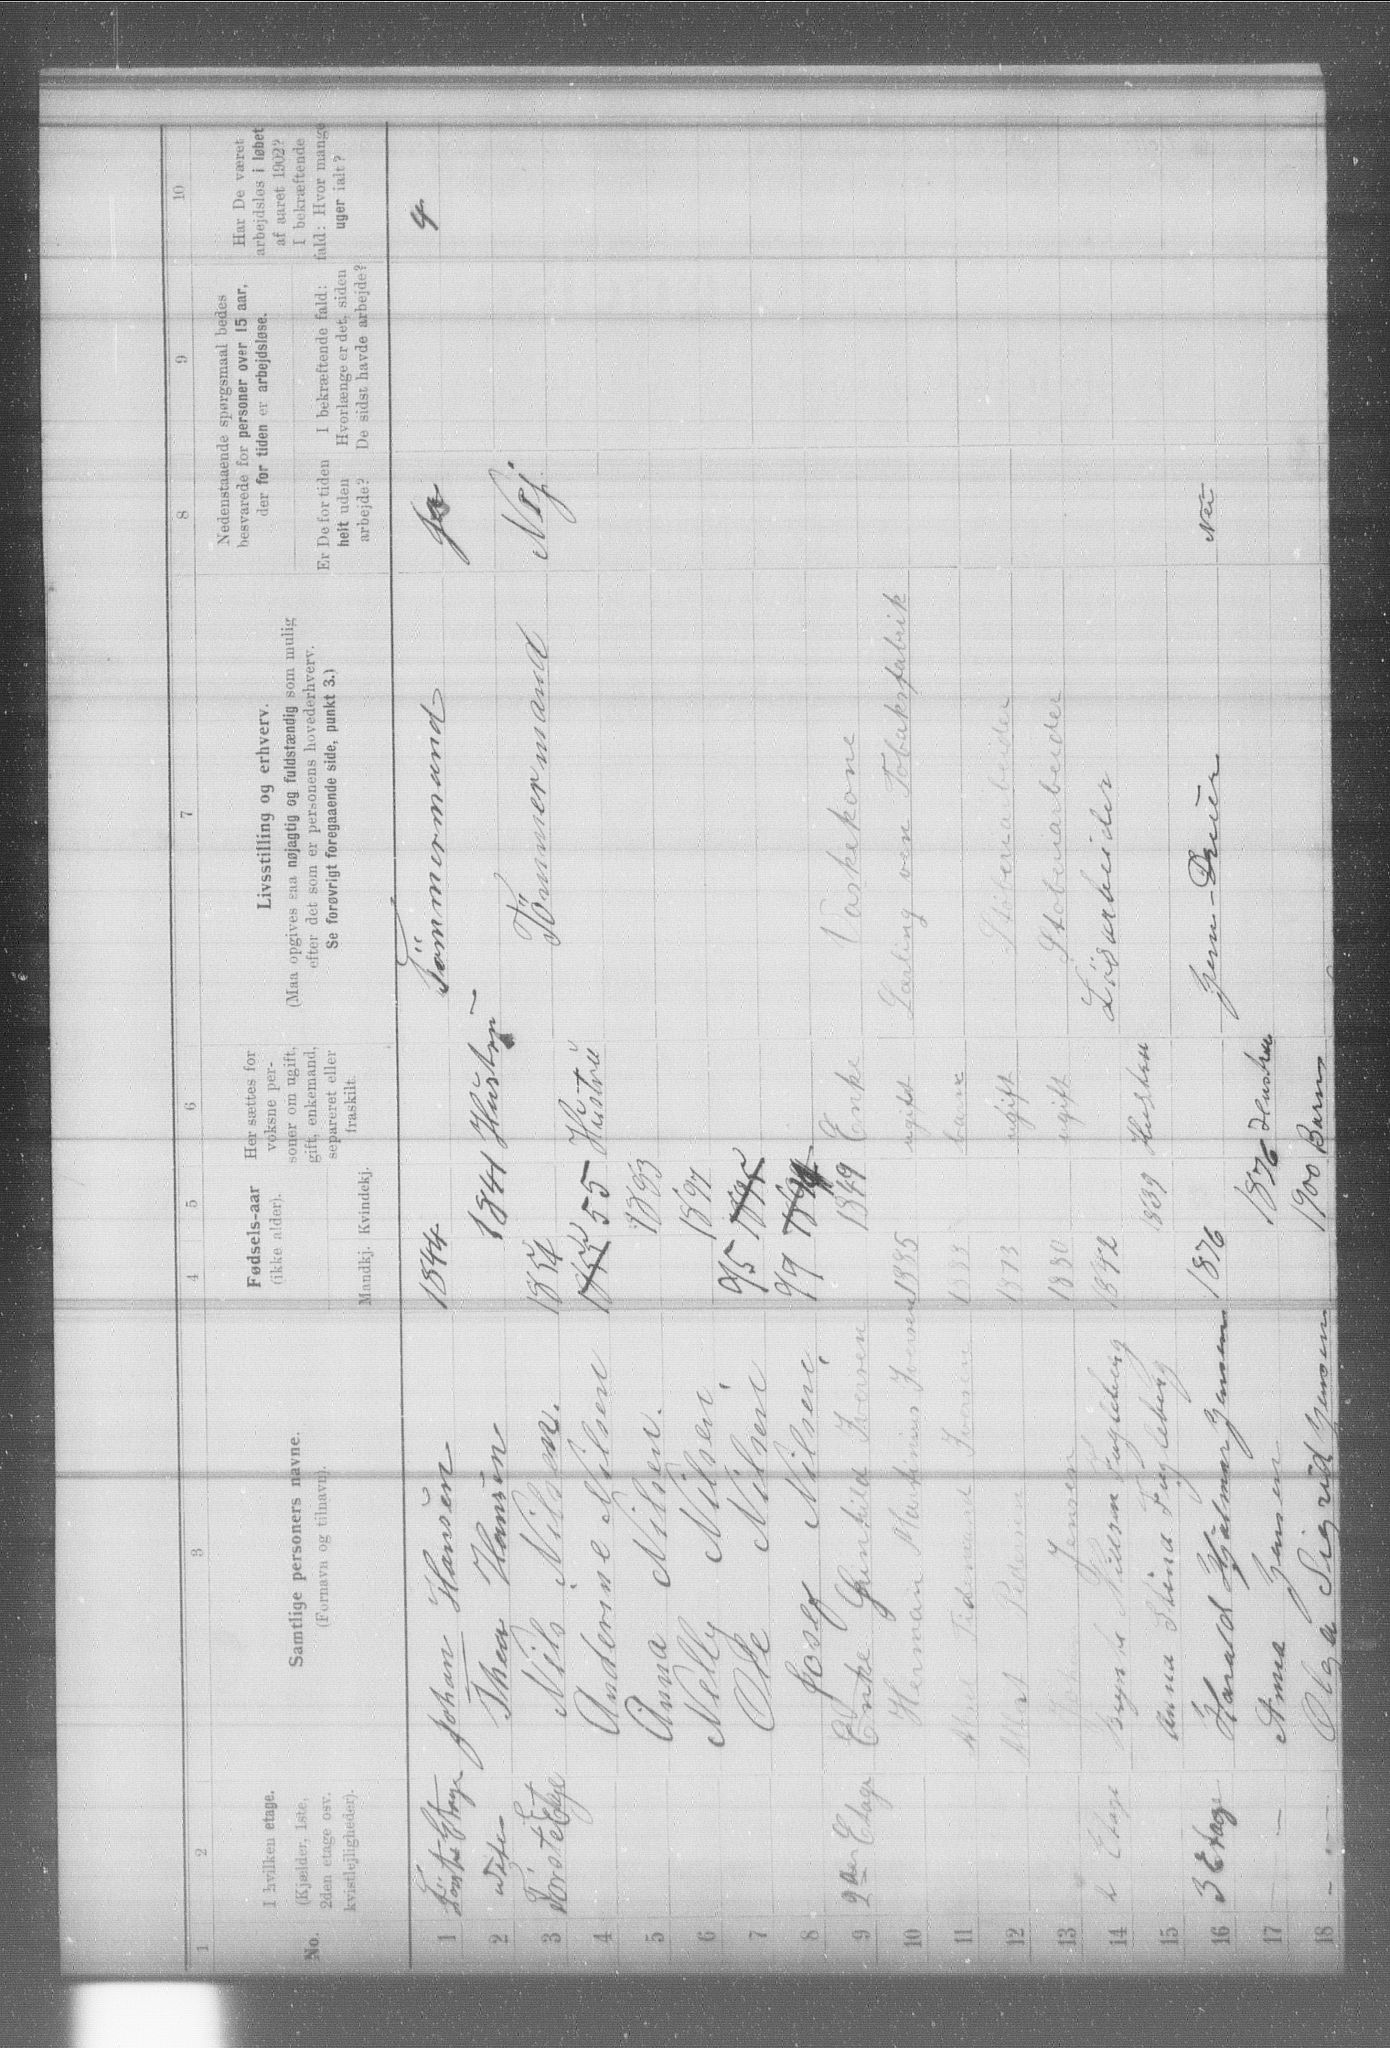 1 2 3 4 5 6 7 8 9 10
No.
I hvilken etage.
(Kjælder, 1ste,
2den etage osv.
kvistlejligheder).
Samtlige personers navne.
(Fornavn og tilnavn).
Fødsels-aar
(ikke alder).
Mandkj. Kvindekj.
Her sættes for
voksne per-
soner om ugift,
gift, enkemand,
separeret eller
fraskilt.
Livsstilling og erhverv.
(Maa opgives saa nøjagtig og fuldstændig som mulig
efter det som er personens hovederhverv.
Se forøvrigt foregaaende side, punkt 3.)
Nedenstaaende spørgsmaal bedes
besvarede for personer over 15 aar,
der for tiden er arbejdsløse.
Er De for tiden
helt uden
arbejde?
I bekræftende fald:
Hvorlænge er det, siden
De sidst havde arbejde?
Har De været
arbejdsløs i løbet
af aaret 1902?
I bekræftende
fald: Hvor mange
uger ialt?
1 Første Etage Johan Hansen 1844 Tömmermand Ja 4
2 Thea Hansen 1841 Hustru
3 Förste Etage Nils Nilsen. 1854 Tömmermand Nej.
4 Anderine Nilsen 55 Hustru
5 Anna Nilsen. 1893
6 Nelly Nilsen 1897
7 Ole Nilsen 95
8 Josef Nilsen 99
9 2den Etage Enke Gunhild Iversen 1849 Enke Vaskekone
10 Herman Martinius Iversen 1885 ugift Lærling ven Tobaksfabrik
11 Tidemand Iversen barn
12 Albert Pedersen 1873 ugift Stöberiarbeider
13 Johan Jensen 1880 ugift Stoberiarbeider
14 2 Etage Fugleberg Lösarbeider
15 Anna Stina Fugleberg 1839
16 3 Etage Harald Hjalmar Jensen 1876 Nei
17 - Anna Jensen 1876 Hustru
18 - - - Olga Sigrid Jensen 1900 Barn